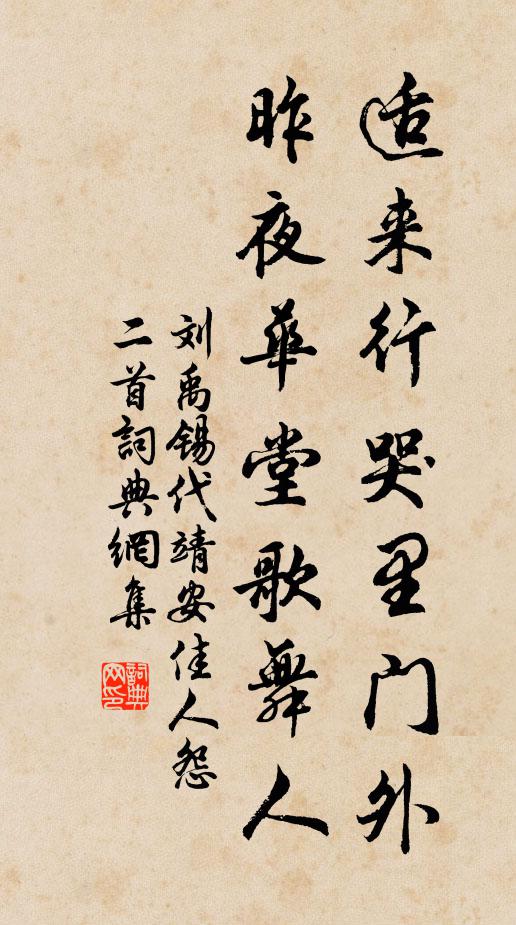 适来行哭里门外
昨夜華堂歌舞人
刘禹锡代靖安佳人怨
二首詞典網集
詞典网印